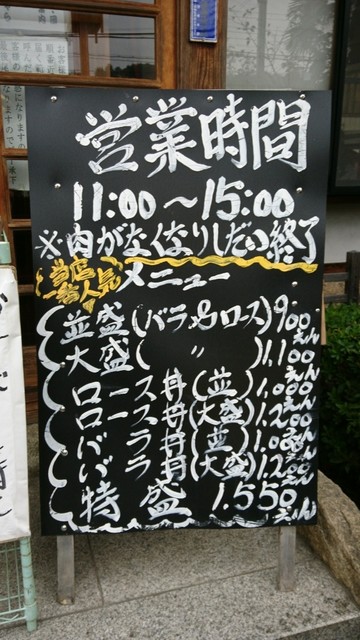 営業時間
11:00～15:00
※肉がなくなりしだい終了
当店一番人気
メニュー
並盛(バラ&ロース)900えん
大盛( 〃 )1.100えん
ロース丼(並)1.000えん
ロース丼(大盛)1.200えん
バラ丼(並)1.000えん
バラ丼(大盛)1.200えん
特盛 1.550えん